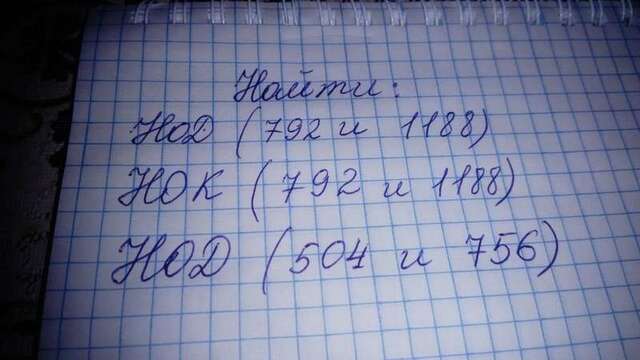 Найти:
НОД (792 и 1188)
НОК (792 и 1188)
НОД (504 и 756)